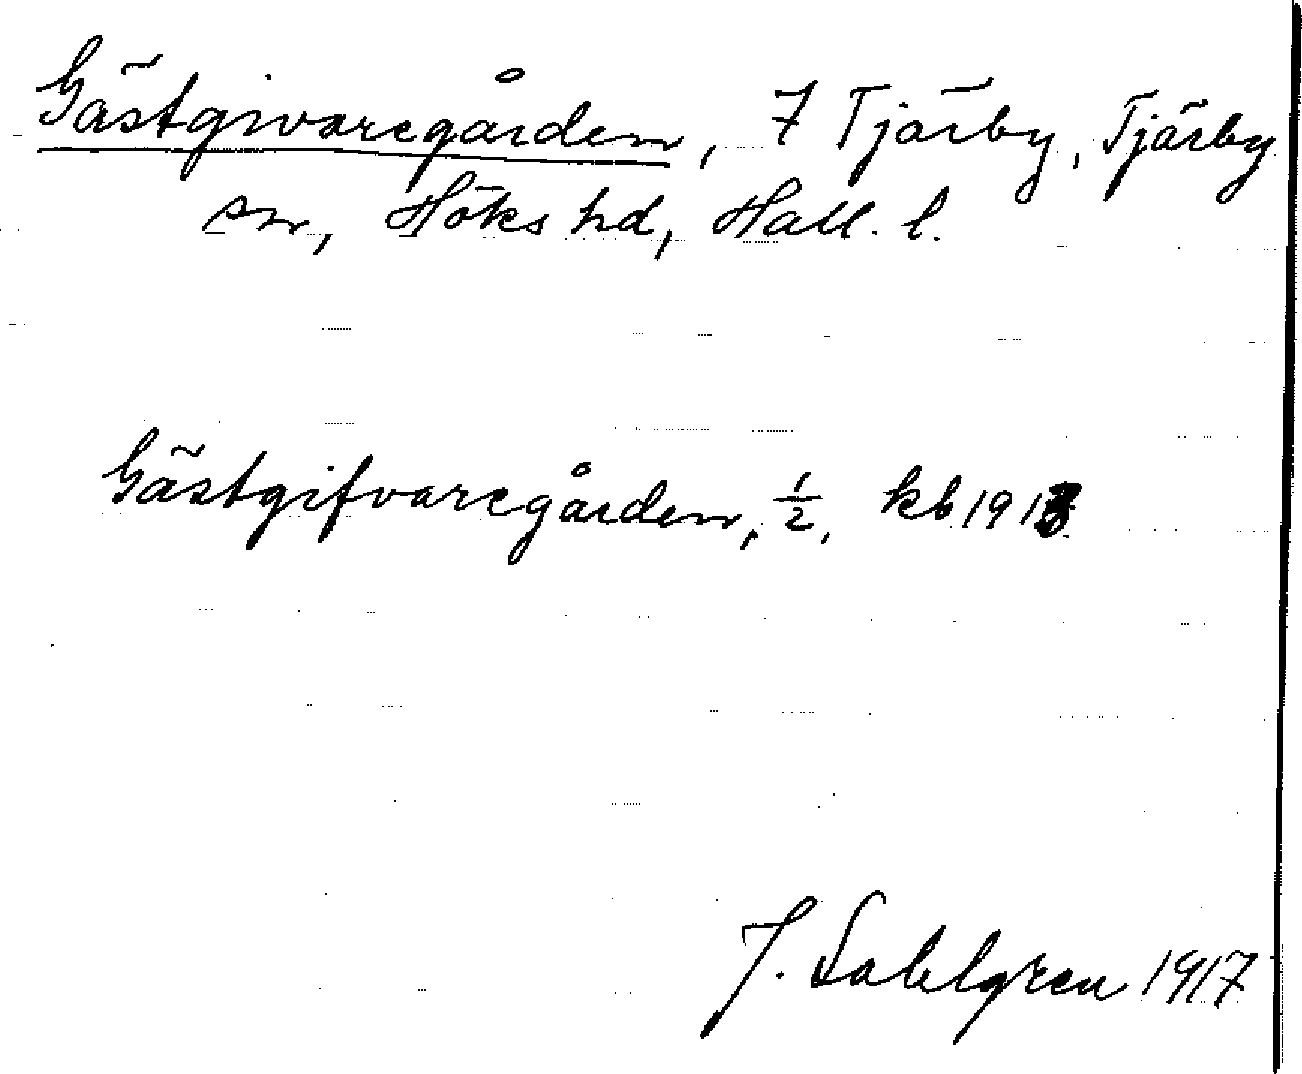 Gästgivaregården, 7 Tjärby, Tjärby
sn, Höks hd, Hall. l.
Gästgifvaregården, 1/2, kb 1913
J. Sahlgren 1917